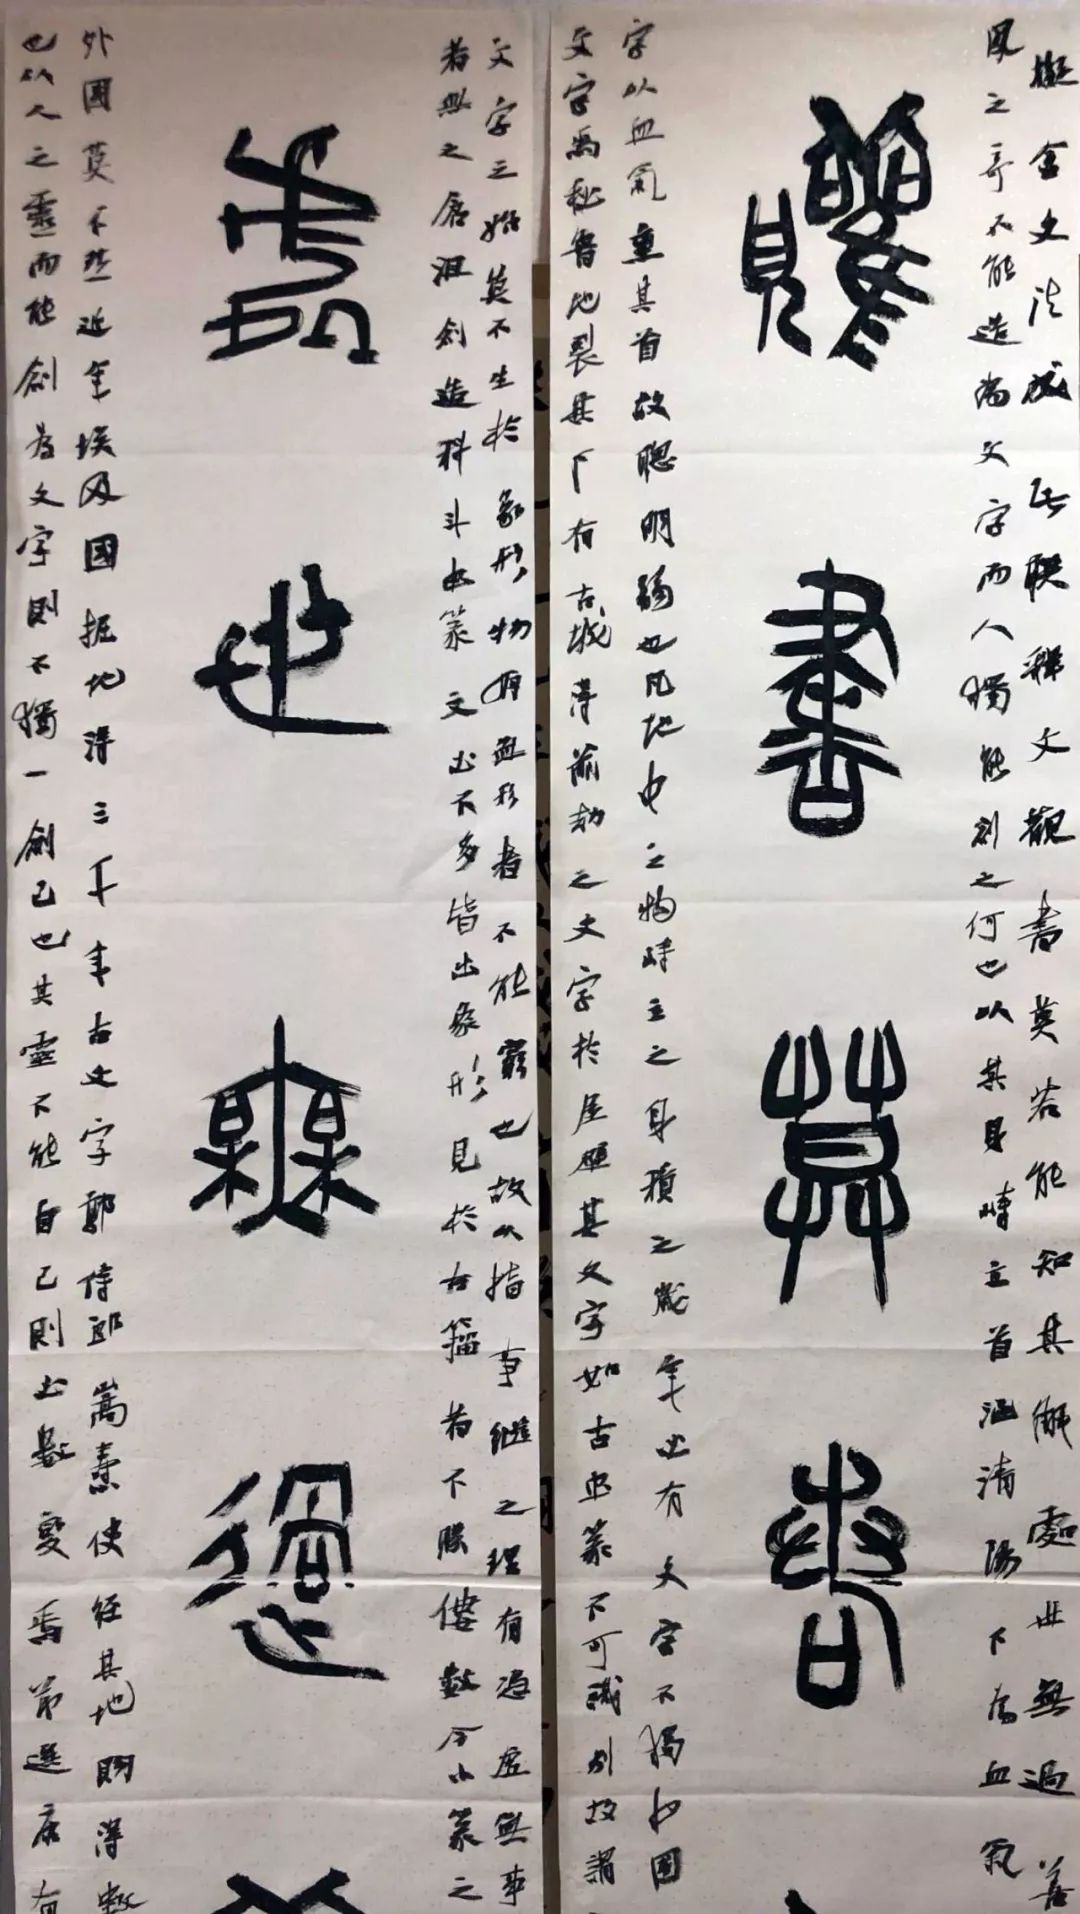 擬金文法成此联釋文觀書莫若能知其徹處世無過善
風之奇不能造為文字而人獨能創之何也以其身峙立首涵清陽下為血氣
觀書莫若
字以血氣重其首故聰明獨也凡地中之物峙立之身積之歲年必有文字不獨中國
文字為秘魯地裂其下有古城得前劫之文字於屋壁其文字如古虫篆不可識別故謂
處世無過
文字之始莫不生於象形物有無形者不能窮也故以指事繼之理有憑虛無事
若無之倉沮創造科斗虫篆文必不多皆出象形見於古籀者不勝僂數今小篆之
外國莫不然近年埃及國掘地得三千年古文字郭侍郎嵩燾使經其地購得數
也以人之靈而能創為文字則不獨一創己也其靈不能自已則必數變焉第選康有